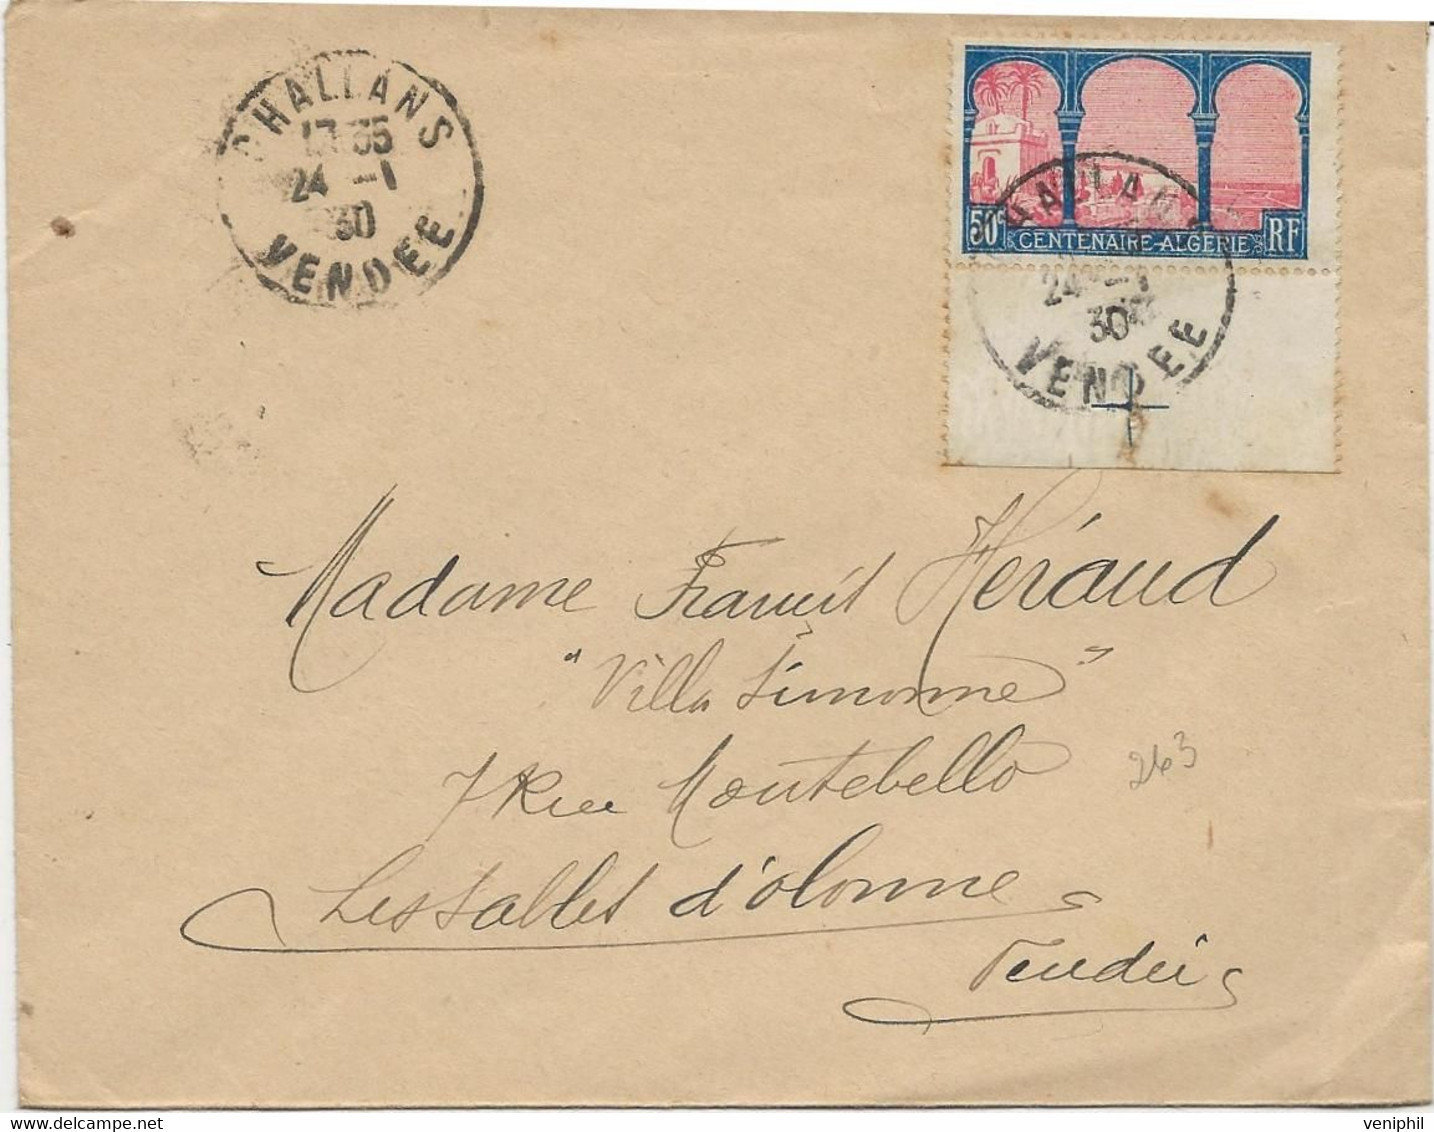 CHALLANS
17 35
24 -1
30
VENDEE
50c CENTENAIRE-ALGÉRIE RF
CHALLANS
24 -1
30
VENDEE
Madame Héraud
"Villa Simonne"
7 Rue Montebello
263
Les Sables d'olonne
Vendée
veniphil